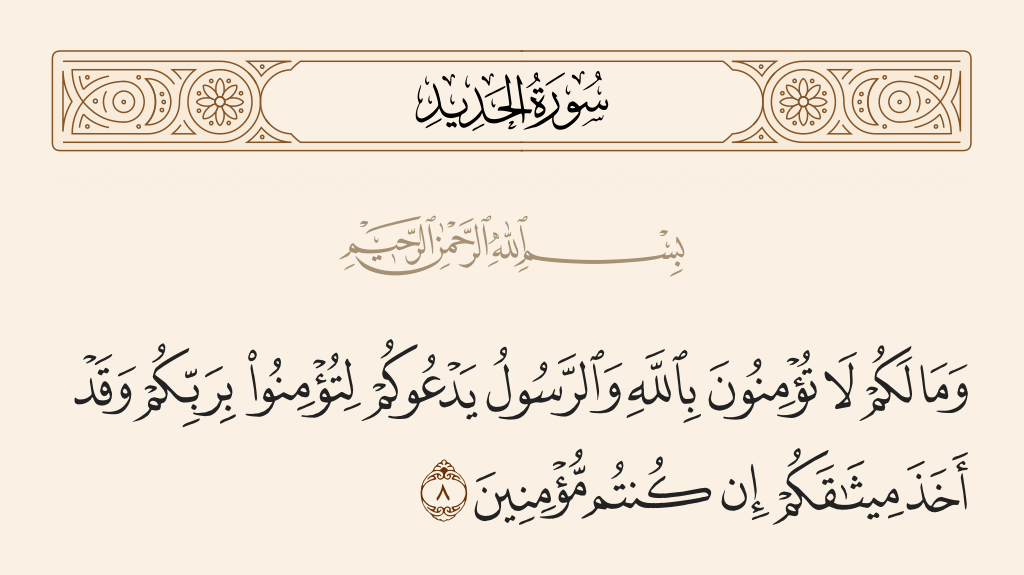 سُورَةُ الحَدِيدِ
بِسْمِ ٱللَّهِ ٱلرَّحْمَٰنِ ٱلرَّحِيمِ
وَمَا لَكُمْ لَا تُؤْمِنُونَ بِٱللَّهِ وَٱلرَّسُولُ يَدْعُوكُمْ لِتُؤْمِنُوا۟ بِرَبِّكُمْ وَقَدْ
أَخَذَ مِيثَٰقَكُمْ إِن كُنتُم مُّؤْمِنِينَ ٨